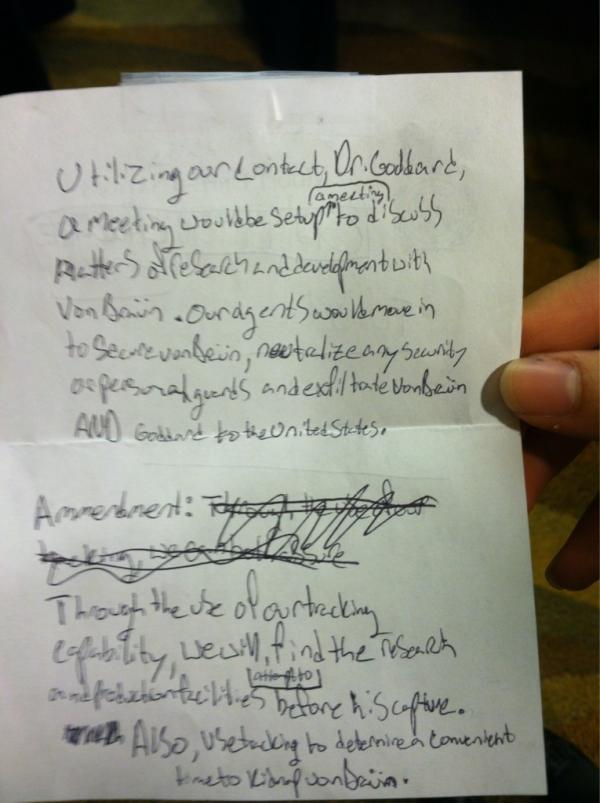 Utilizing our contact, Dr. Goddard,
a meeting
a meeting would be setup to discuss
matters of research and development with
Von Braün. Our agents would move in
to secure von Beün, neutralize any security
or personal guards and exfiltrate Von Beün
AND Goddard to the United States.
Ammendment:
Through the use of our tracking
capability, we will, find the research
attempt to
and production facilities before his capture.
Also, use tacking to determine a convenient
time to kidnap von Beün.